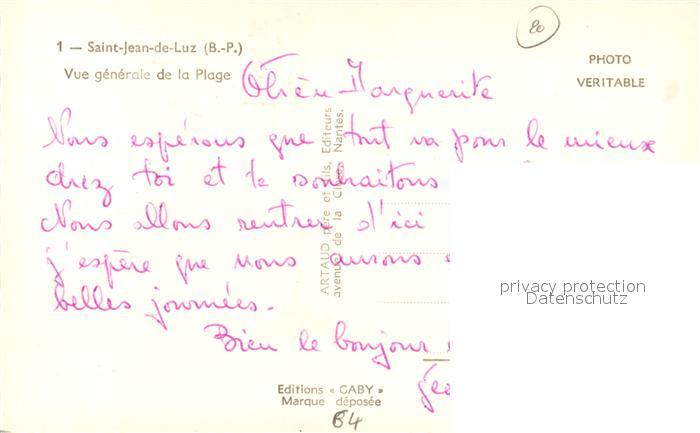 80
1 — Saint-Jean-de-Luz (B.-P.)
Vue générale de la Plage
PHOTO
VERITABLE
Chère Marguerite
Nous espérons que tout va pour le mieux
chez toi et te souhaitons
Nous allons rentrer d'ici
j'espère que nous aurons
belles journées.
Bien le bonjour
ARTAUD père et fils, Editeurs
avenue de la Nantes.
privacy protection
Datenschutz
Editions « GABY »
Marque déposée
64